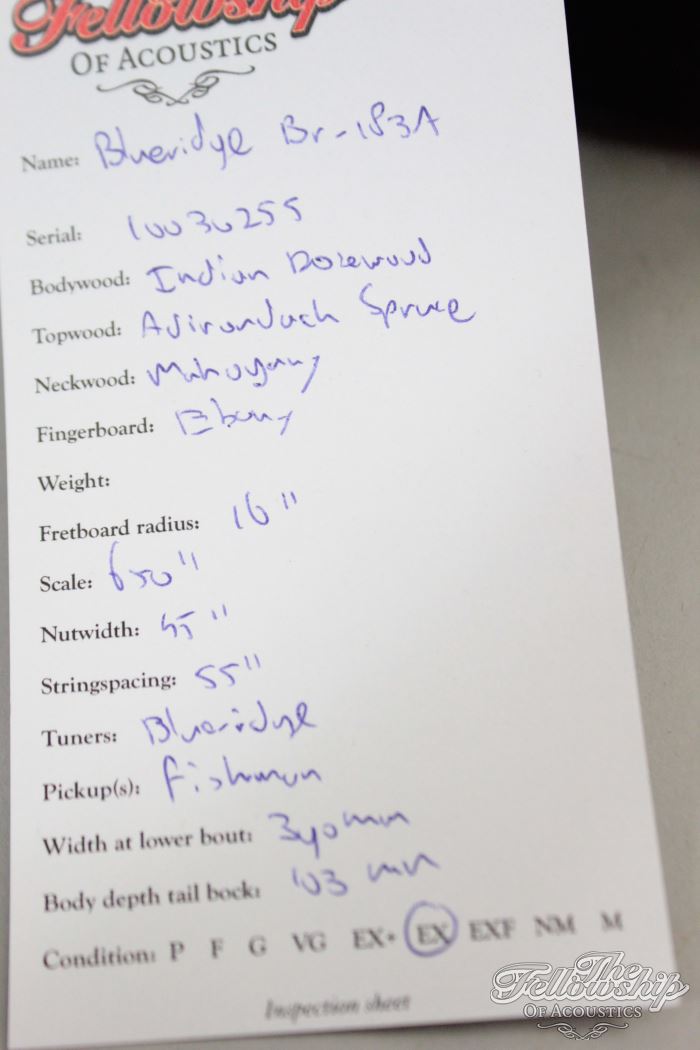 Fellowship
OF ACOUSTICS
Name: Blueridge Br-183A
Serial: 10030255
Bodywood: Indian Rosewood
Topwood: Adirondack Spruce
Neckwood: Mahogany
Fingerboard: Ebony
Weight:
Fretboard radius: 16"
Scale: 650"
Nutwidth: 45"
Stringspacing: 55"
Tuners: Blueridge
Pickup(s): Fishman
Width at lower bout: 390mm
Body depth tail bock: 103 mm
Condition: P F G VG EX- EX EXF NM M
Inspection sheet
The
Fellowship
OF ACOUSTICS